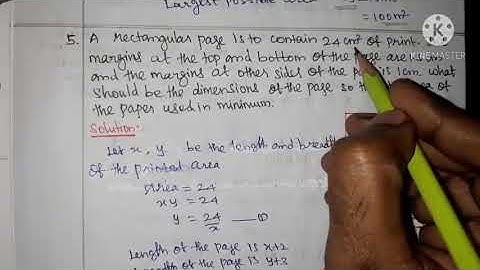 Largest possible
= 100m²
KINEMASTER
5. A rectangular page is to contain 24 cm² of print.
margins at the top and bottom of the page are
and the margins at other sides of the is 1cm. what
should be the dimensions of the page so of
the paper used in minimum.
Solution:-
Let x, y be the length and
of the printed area
Area = 24
xy = 24
y = 24/x —①
Length of the page is x+2
of the page is y+3